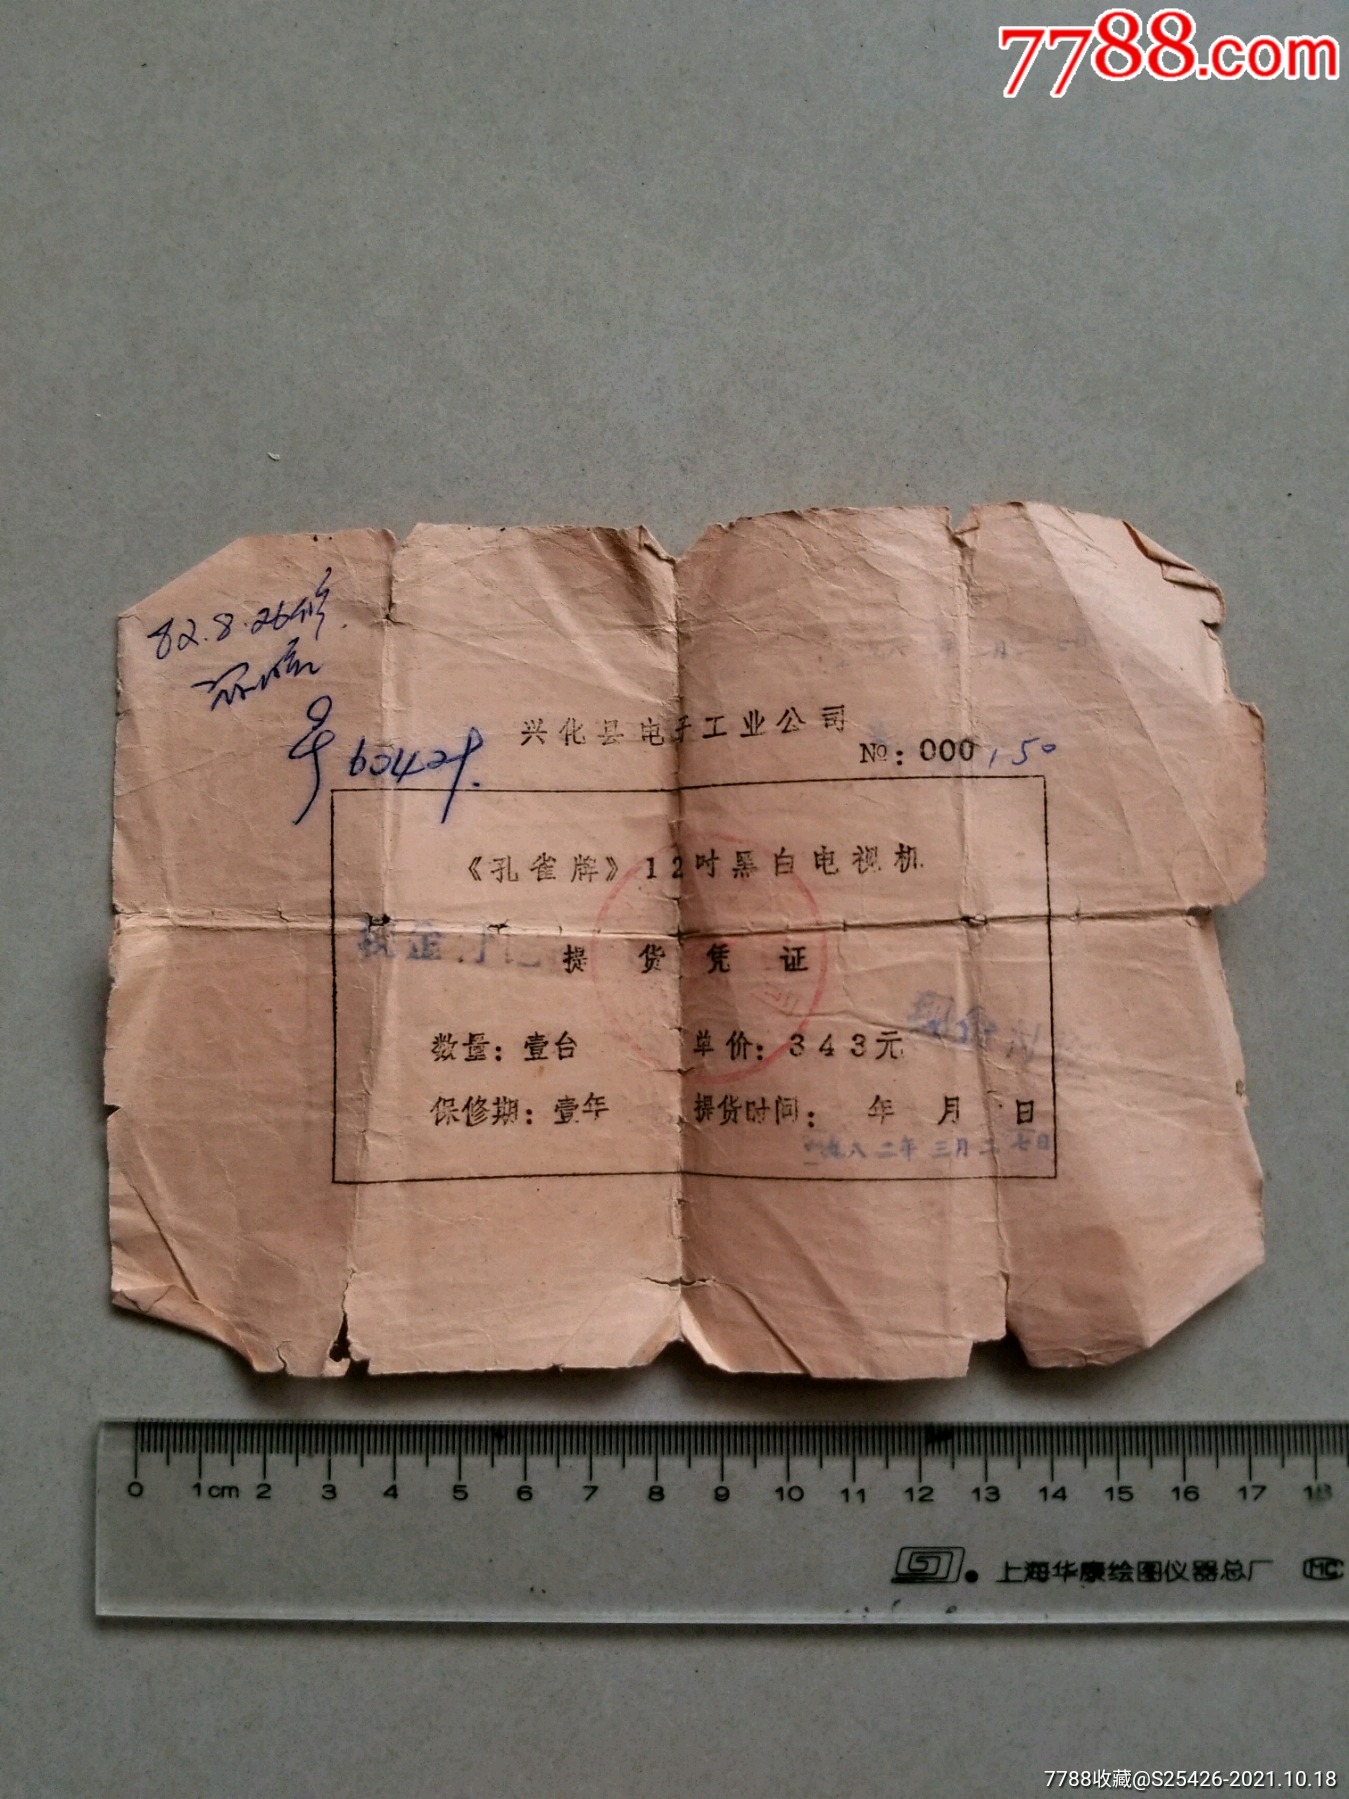 7788.com
82.8.26修
兴化县电子工业公司
№: 000150
《孔雀牌》12吋黑白电视机
现金
提货凭证
现金
数量：壹台 单价：343元
保修期：壹年 提货时间： 年 月 日
一九八二年三月二七日
0 1cm 2 3 4 5 6 7 8 9 10 11 12 13 14 15 16 17 18
上海华康绘图仪器总厂 MC
7788收藏@S25426-2021.10.18